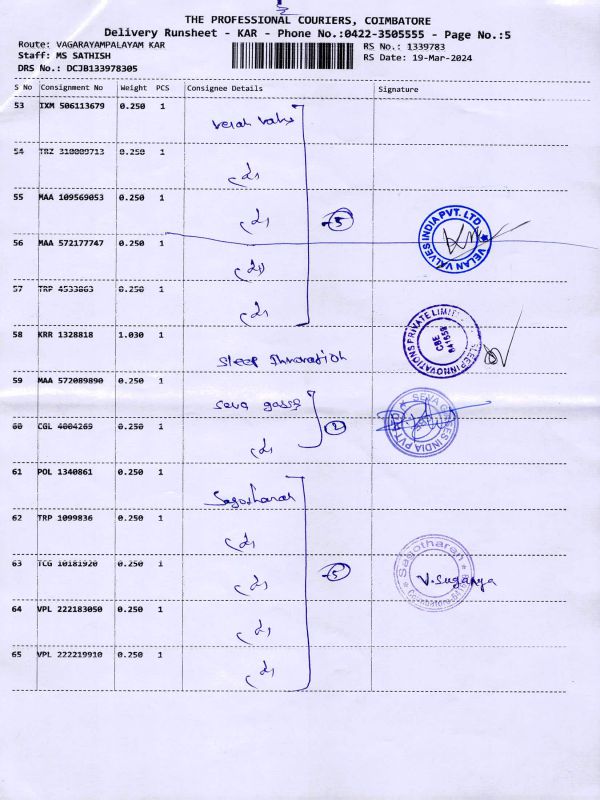 THE PROFESSIONAL COURIERS, COIMBATORE
Delivery Runsheet - KAR - Phone No.:0422-3505555 - Page No.:5
Route: VAGARAYAMPALAYAM KAR
RS No.: 1339783
Staff: MS SATHISH
RS Date: 19-Mar-2024
DRS No.: DCJB133978305
S No Consignment No Weight PCS Consignee Details Signature
53 IXM 506113679 0.250 1
54 TRZ 310009713 0.250 1
55 MAA 109569053 0.250 1
5
VELAN VALVES INDIA PVT. LTD.
56 MAA 572177747 0.250 1
57 TRP 4533863 0.250 1
58 KRR 1328818 1.030 1 Sleep Innovation
SLEEP INNOVATIONS PRIVATE LIMITED
CBE
641659
59 MAA 572089890 0.250 1 Seva gasses
SEVA GASSES INDIA PVT.
60 CGL 4004269 0.250 1 2
61 POL 1340861 0.250 1 Sagotharan
62 TRP 1099836 0.250 1
63 TCG 10181920 0.250 1 5
Sagotharan
V. Suganya
Coimbatore
64 VPL 222183050 0.250 1
65 VPL 222219910 0.250 1